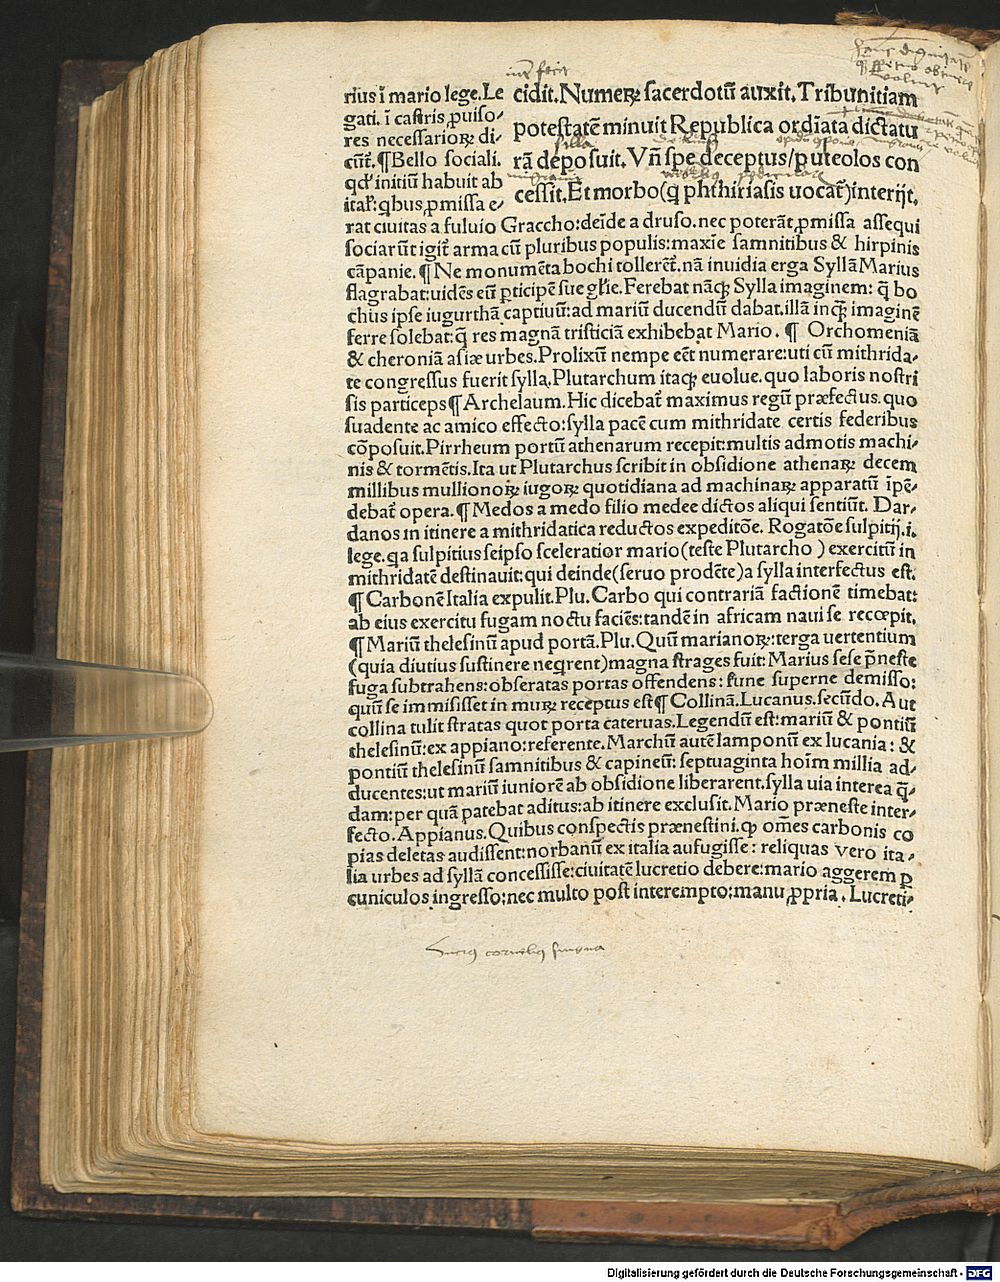 cidit. Numeꝝ sacerdotū auxit. Tribunitiam
potestatē minuit Republica ordīata dictatu
rā deposuit. Vñ spe deceptus/puteolos con
cessit. Et morbo (q̄ phthiriasis uocat̄) interijt.
rius ī mario lege. Le
gati. ī castris ꝓuiso⸗
res necessarioꝝ di⸗
cūt̄. ¶ Bello sociali.
qd̓ initiū habuit ab
itat̓: qbus ꝓmissa e⸗
rat ciuitas a fuluio Graccho: deīde a druso. nec poterāt ꝓmissa assequi
sociarūt igit̄ arma cū pluribus populis: maxīe samnitibus & hirpinis
cāpanie. ¶ Ne monumēta bochi tollerēt̄. nā inuidia erga Syllā Marius
flagrabat: uidēs eū ꝑticipē sue gl̓ie. Ferebat nāqꝫ Sylla imaginem: q̄ bo
chus ipse iugurthā captiuū: ad mariū ducendū dabat. illā inqꝫ imaginē
ferre solebat: q̄ res magnā tristiciā exhibebat Mario. ¶ Orchomeniā
& cheroniā asiæ urbes. Prolixū nempe eēt numerare: uti cū mithrida⸗
te congressus fuerit sylla. Plutarchum itaqꝫ euolue. quo laboris nostri
sis particeps ¶ Archelaum. Hic dicebat̄ maximus regū præfectus. quo
suadente ac amico effecto: sylla pacē cum mithridate certis federibus
cōposuit. Pirrheum portū athenarum recepit: multis admotis machi⸗
nis & tormētis. Ita ut Plutarchus scribit in obsidione athenaꝝ decem
millibus mullionoꝝ iugoꝝ quotidiana ad machinaꝝ apparatū īpē⸗
debat̄ opera. ¶ Medos a medo filio medee dictos aliqui sentiūt. Dar⸗
danos in itinere a mithridatica reductos expeditōe. Rogatōe sulpitij. i.
lege. qa sulpitius seipso sceleratior mario (teste Plutarcho) exercitū in
mithridatē destinauit: qui deinde (seruo prodēte) a sylla interfectus est.
¶ Carbonē Italia expulit. Plu. Carbo qui contrariā factionē timebat:
ab eius exercitu fugam noctu faciēs: tandē in africam naui se recœpit.
¶ Mariū thelesinū apud portā. Plu. Quū marianoꝝ: terga uertentium
(quia diutius sustinere neqrent) magna strages fuit: Marius sese p̄neste
fuga subtrahens: obseratas portas offendens: fune superne demisso:
quū se immisisset in muꝝ receptus est ¶ Collinā. Lucanus. secūdo. Aut
collina tulit stratas quot porta cateruas. Legendū est: mariū & pontiū
thelesinū: ex appiano: referente. Marchū autē lamponū ex lucania: &
pontiū thelesinū samnitibus & capineū: septuaginta hoīm millia ad⸗
ducentes: ut mariū iuniorē ab obsidione liberarent. sylla uia interea q̄⸗
dam: per quā patebat aditus: ab itinere exclusit. Mario præneste inter⸗
fecto. Appianus. Quibus conspectis prænestini. ꝙ om̄es carbonis co
pias deletas audissent: norbanū ex italia aufugisse: reliquas vero ita⸗
lia urbes ad syllā concessisse: ciuitatē lucretio debere: mario aggerem ꝑ
cuniculos ingresso: nec multo post interempto: manu ꝓpria. Lucreti⸗
Digitalisierung gefördert durch die Deutsche Forschungsgemeinschaft - DFG